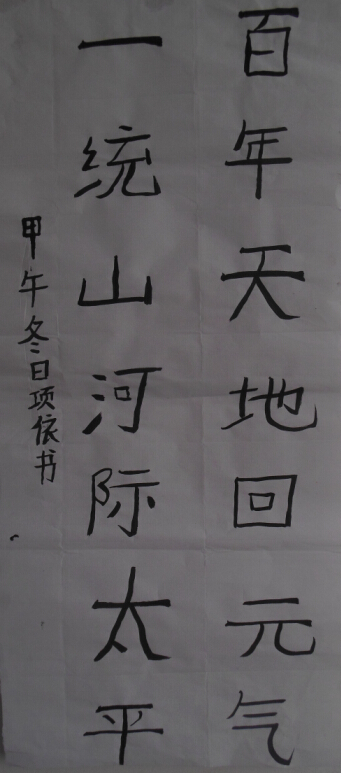 百年天地回元气
一统山河际太平
甲午冬日项依书